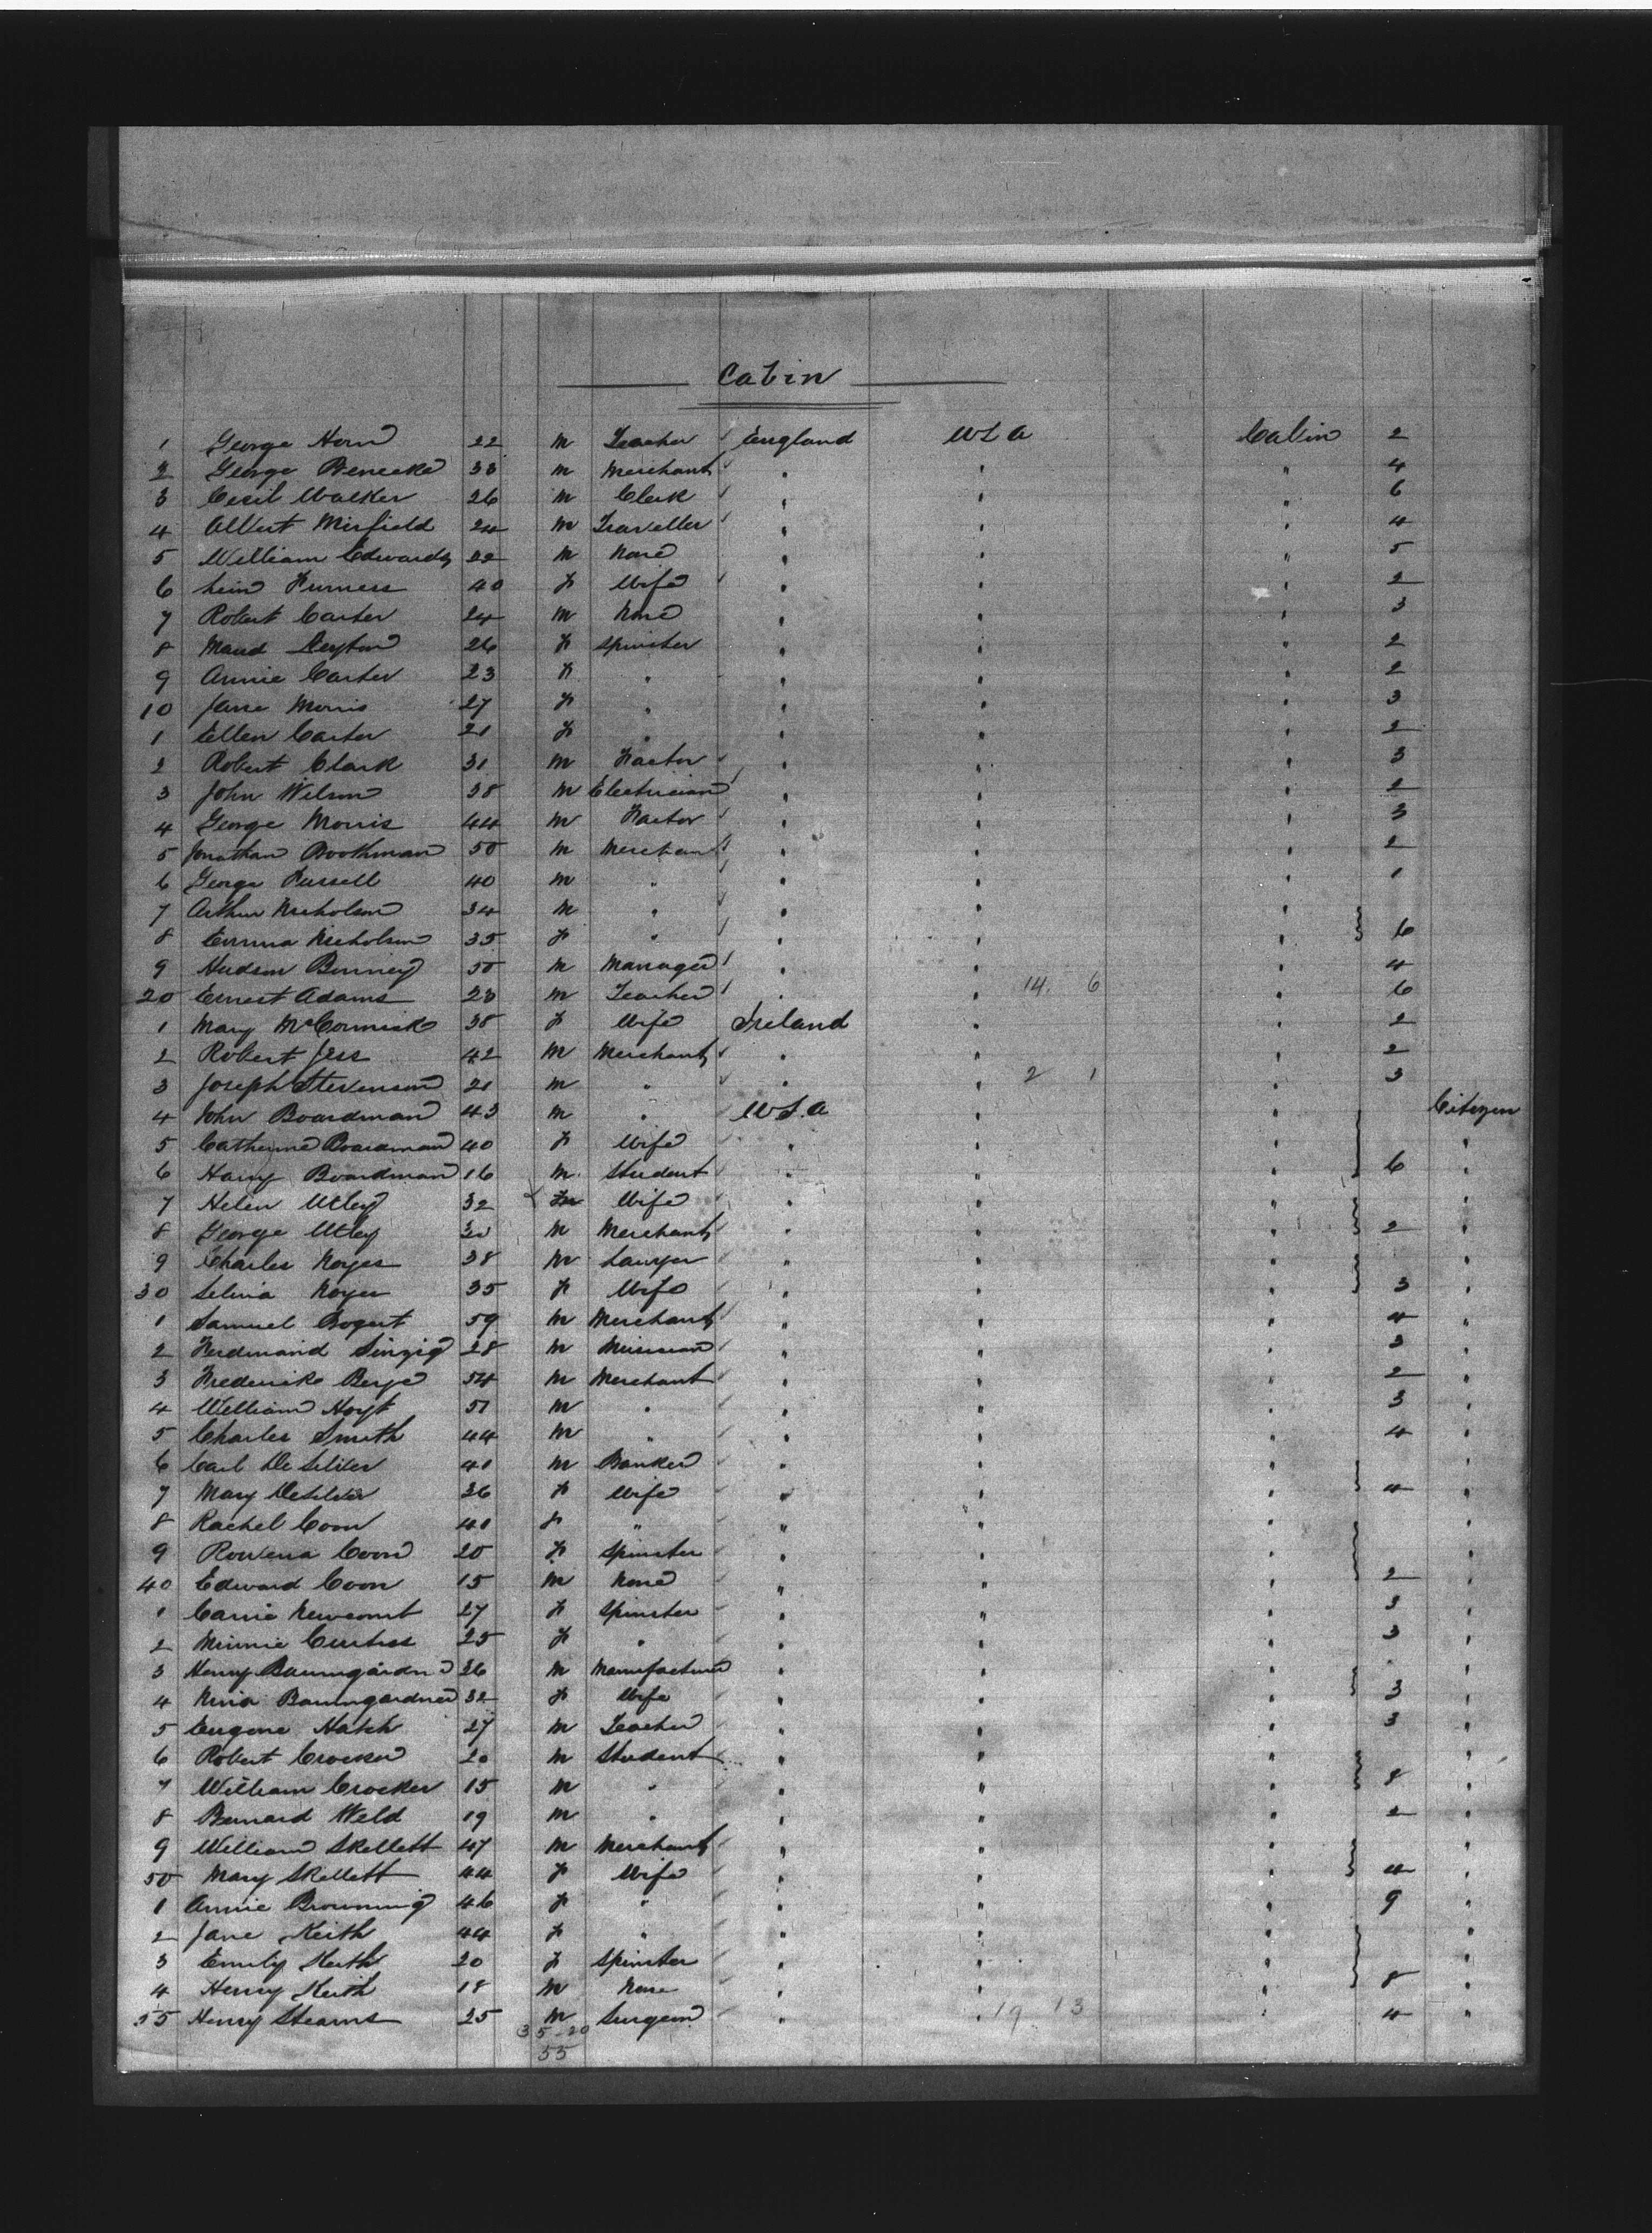 Cabin
1 George Horn 22 m Teacher England USA Cabin 2
2 George Benecke 33 m Merchant " " " 4
3 Cecil Walker 26 m Clerk " " " 6
4 Albert Mirfield 24 m Traveller " " " 4
5 William Edwards 22 m None " " " 5
6 Furness 40 f Wife " " " 2
7 Robert Carter 24 m None " " " 3
8 Maud Leyton 26 f Spinster " " " 2
9 Annie Carter 23 f " " " " 2
10 Jane Morris 27 f " " " " 3
1 Ellen Carter 21 f " " " " 2
2 Robert Clark 31 m Factor " " " 3
3 John Wilson 38 m Electrician " " " 2
4 George Morris 44 m Factor " " " 3
5 Jonathan Boothman 50 m Merchant " " " 2
6 George 40 m " " " " 1
7 Arthur Nicholson 34 m " " " "
8 Emma Nicholson 35 f " " " " 6
9 Hudson Binney 50 m Manager " " " 4
20 Ernest Adams 23 m Teacher " " 14. 6 " 6
1 Mary McCormick 38 f Wife Ireland " " 2
2 Robert Jess 42 m Merchant " " " 2
3 Joseph Stevenson 21 m " " " 2 1 " 3
4 John Boardman 43 m " U.S.A " " Citizen
5 Catherine Boardman 40 f Wife " " " "
6 Harry Boardman 16 m Student " " " 6 "
7 Helen Utley 32 Wife " " " "
8 George Utley m Merchant " " " 2 "
9 Charles Noyes 38 m Lawyer " " " "
30 Selina Noyes 35 f Wife " " " 3 "
1 Samuel Bogert 59 m Merchant " " " 4 "
2 Ferdinand Sinzig 28 m Musician " " " 3 "
3 Frederick Berge 54 m Merchant " " " 2 "
4 William Hoyt 51 m " " " " 3 "
5 Charles Smith 44 m " " " " 4 "
6 Carl De Silver 41 m Banker " " " "
7 Mary DeSilver 36 f Wife " " " 4 "
8 Rachel Coon 41 f " " " " "
9 Rowena Coon 20 f Spinster " " " "
40 Edward Coon 15 m None " " " 2 "
1 Carrie Newcomb 27 f Spinster " " " 3 "
2 Minnie Curtiss 25 f " " " " 3 "
3 Henry Baumgardner 36 m Manufacturer " " " "
4 Nina Baumgardner 32 f Wife " " " 3 "
5 Eugene Hatch 27 m Teacher " " " 3 "
6 Robert Crocker 20 m Student " " " "
7 William Crocker 15 m " " " " 8 "
8 Bernard Weld 19 m " " " " 2 "
9 William Skellett 47 m Merchant " " " "
50 Mary Skellett 44 f Wife " " " 4 "
1 Annie Browning 46 f " " " " 9 "
2 Jane Keith 44 f " " " " "
3 Emily Keith 20 f Spinster " " " "
4 Henry Keith 18 m None " " " 8 "
55 Henry Stearns 25 m Surgeon " " 19 13 " 4 "
35-20
55